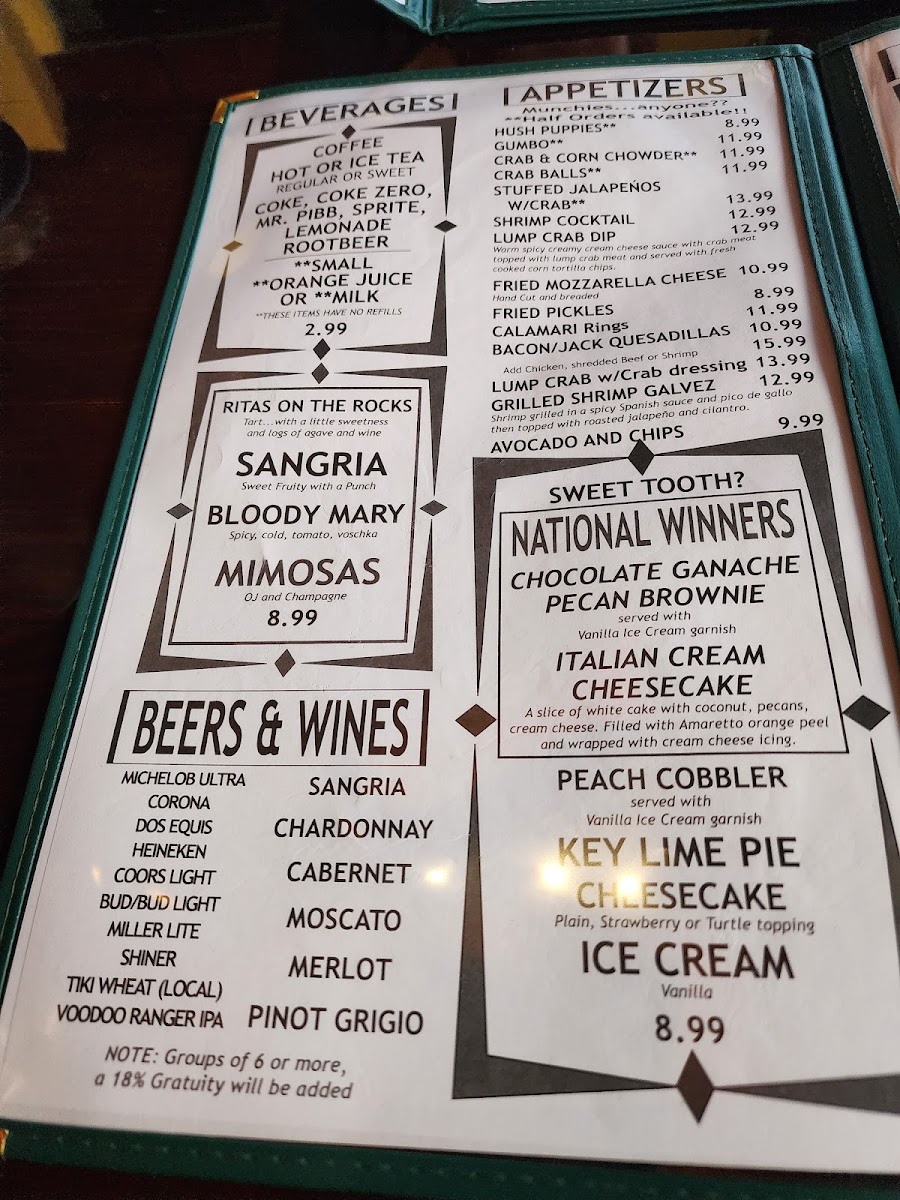 BEVERAGES
COFFEE
HOT OR ICE TEA
REGULAR OR SWEET
COKE, COKE ZERO,
MR. PIBB, SPRITE,
LEMONADE
ROOTBEER
**SMALL
**ORANGE JUICE
OR **MILK
**THESE ITEMS HAVE NO REFILLS
2.99
RITAS ON THE ROCKS
Tart...with a little sweetness
and logs of agave and wine
SANGRIA
Sweet Fruity with a Punch
BLOODY MARY
Spicy, cold, tomato, voschka
MIMOSAS
OJ and Champagne
8.99
BEERS & WINES
MICHELOB ULTRA
CORONA
DOS EQUIS
HEINEKEN
COORS LIGHT
BUD/BUD LIGHT
MILLER LITE
SHINER
TIKI WHEAT (LOCAL)
VOODOO RANGER IPA
SANGRIA
CHARDONNAY
CABERNET
MOSCATO
MERLOT
PINOT GRIGIO
NOTE: Groups of 6 or more,
a 18% Gratuity will be added
APPETIZERS
Munchies...anyone??
**Half Orders available!!
HUSH PUPPIES** 8.99
GUMBO** 11.99
CRAB & CORN CHOWDER** 11.99
CRAB BALLS** 11.99
STUFFED JALAPEÑOS
W/CRAB** 13.99
SHRIMP COCKTAIL 12.99
LUMP CRAB DIP 12.99
Warm spicy creamy cream cheese sauce with crab meat
topped with lump crab meat and served with fresh
cooked corn tortilla chips.
FRIED MOZZARELLA CHEESE 10.99
Hand Cut and breaded
FRIED PICKLES 8.99
CALAMARI Rings 11.99
BACON/JACK QUESADILLAS 10.99
Add Chicken, shredded Beef or Shrimp 15.99
LUMP CRAB w/Crab dressing 13.99
GRILLED SHRIMP GALVEZ 12.99
Shrimp grilled in a spicy Spanish sauce and pico de gallo
then topped with roasted jalapeño and cilantro.
AVOCADO AND CHIPS 9.99
SWEET TOOTH?
NATIONAL WINNERS
CHOCOLATE GANACHE
PECAN BROWNIE
served with
Vanilla Ice Cream garnish
ITALIAN CREAM
CHEESECAKE
A slice of white cake with coconut, pecans,
cream cheese. Filled with Amaretto orange peel
and wrapped with cream cheese icing.
PEACH COBBLER
served with
Vanilla Ice Cream garnish
KEY LIME PIE
CHEESECAKE
Plain, Strawberry or Turtle topping
ICE CREAM
Vanilla
8.99